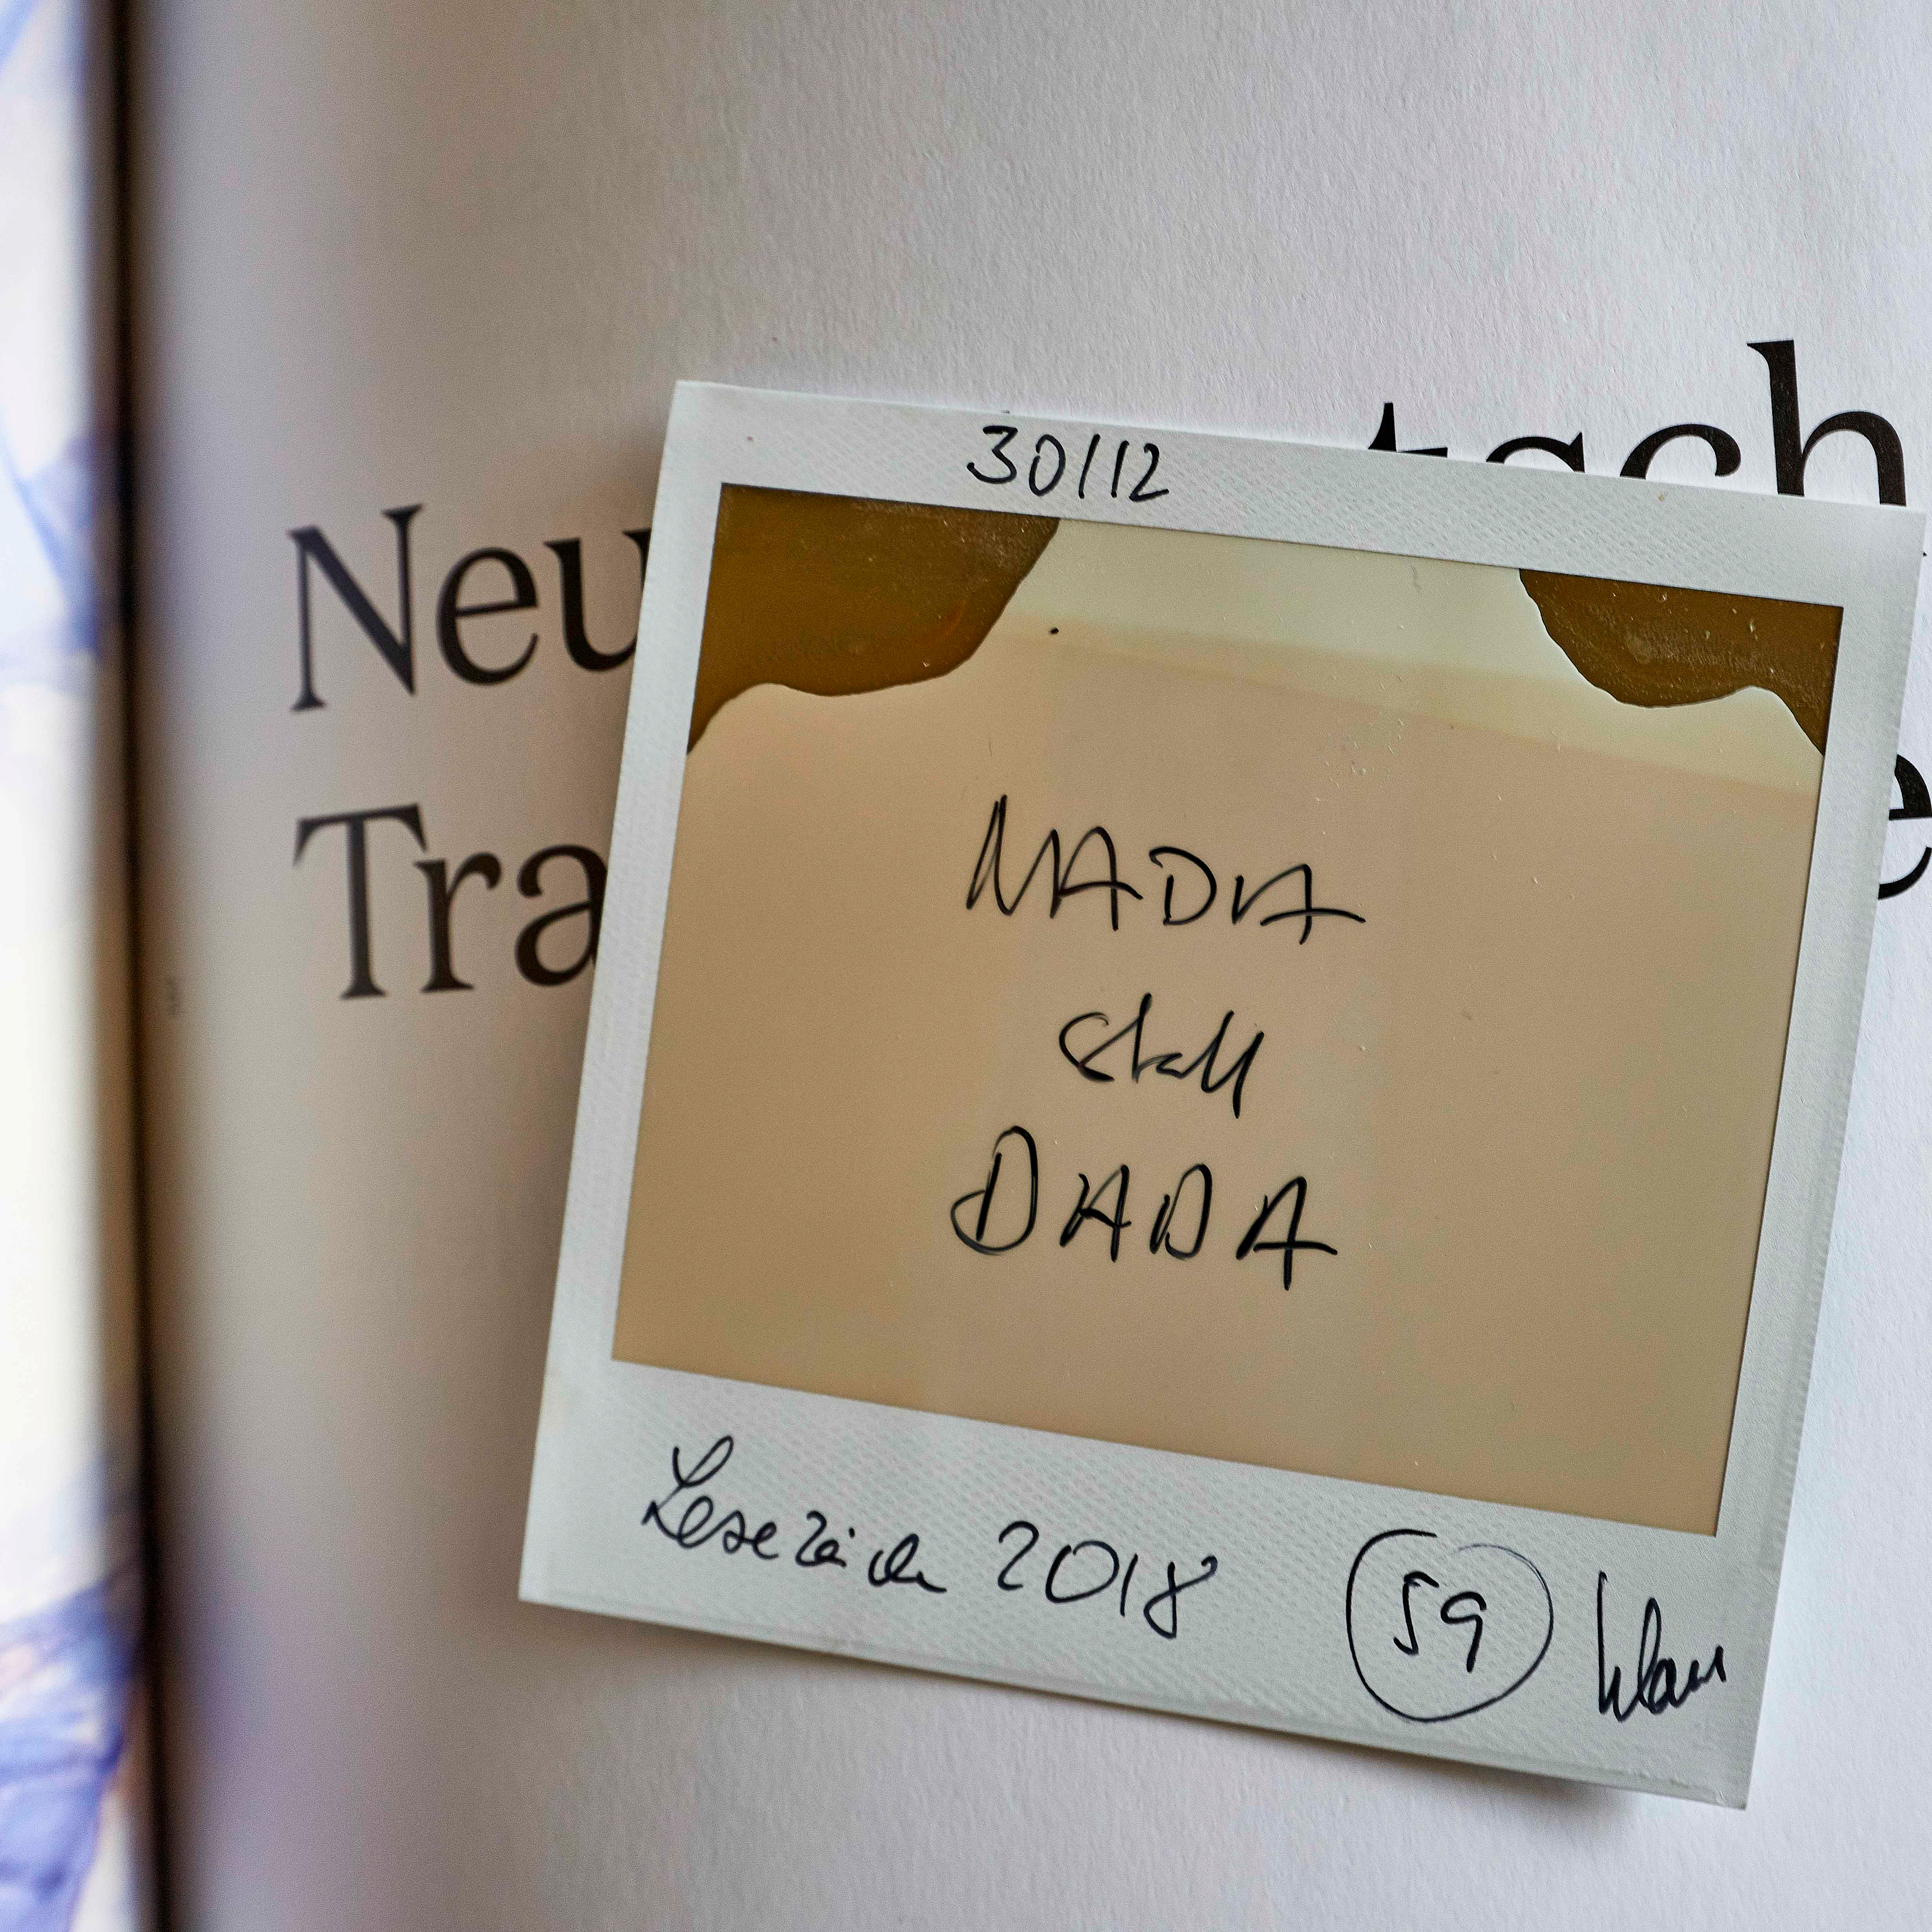 tsch
30/12
Neu
Tra
e
NADIA
statt
DADA
Lesezeichen 2018
59
Klaus